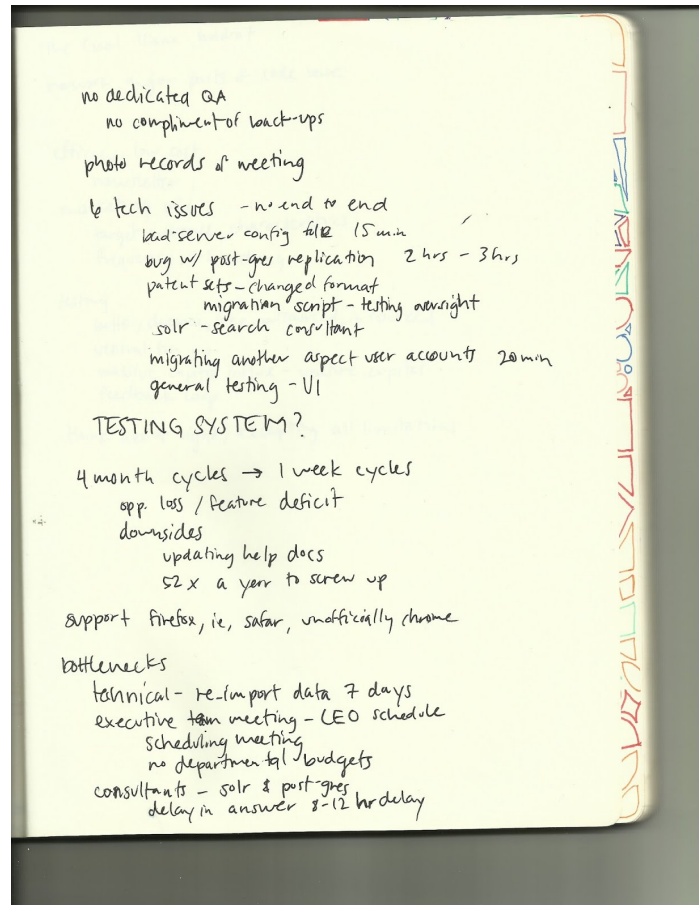 no dedicated QA
no compliment of back-ups
photo records of meeting
6 tech issues - no end to end
bad-server config file 15 min
bug w/ post-gres replication 2 hrs - 3hrs
patent sets - changed format
migration script - testing oversight
solr - search consultant
migrating another aspect user accounts 20min
general testing - UI
TESTING SYSTEM?
4 month cycles → 1 week cycles
opp. loss / feature deficit
downsides
updating help docs
52 x a year to screw up
support firefox, ie, safar, unofficially chrome
bottlenecks
technical - re-import data 7 days
executive team meeting - CEO schedule
scheduling meeting
no departmental budgets
consultants - solr & post-gres
delay in answer 8-12 hr delay